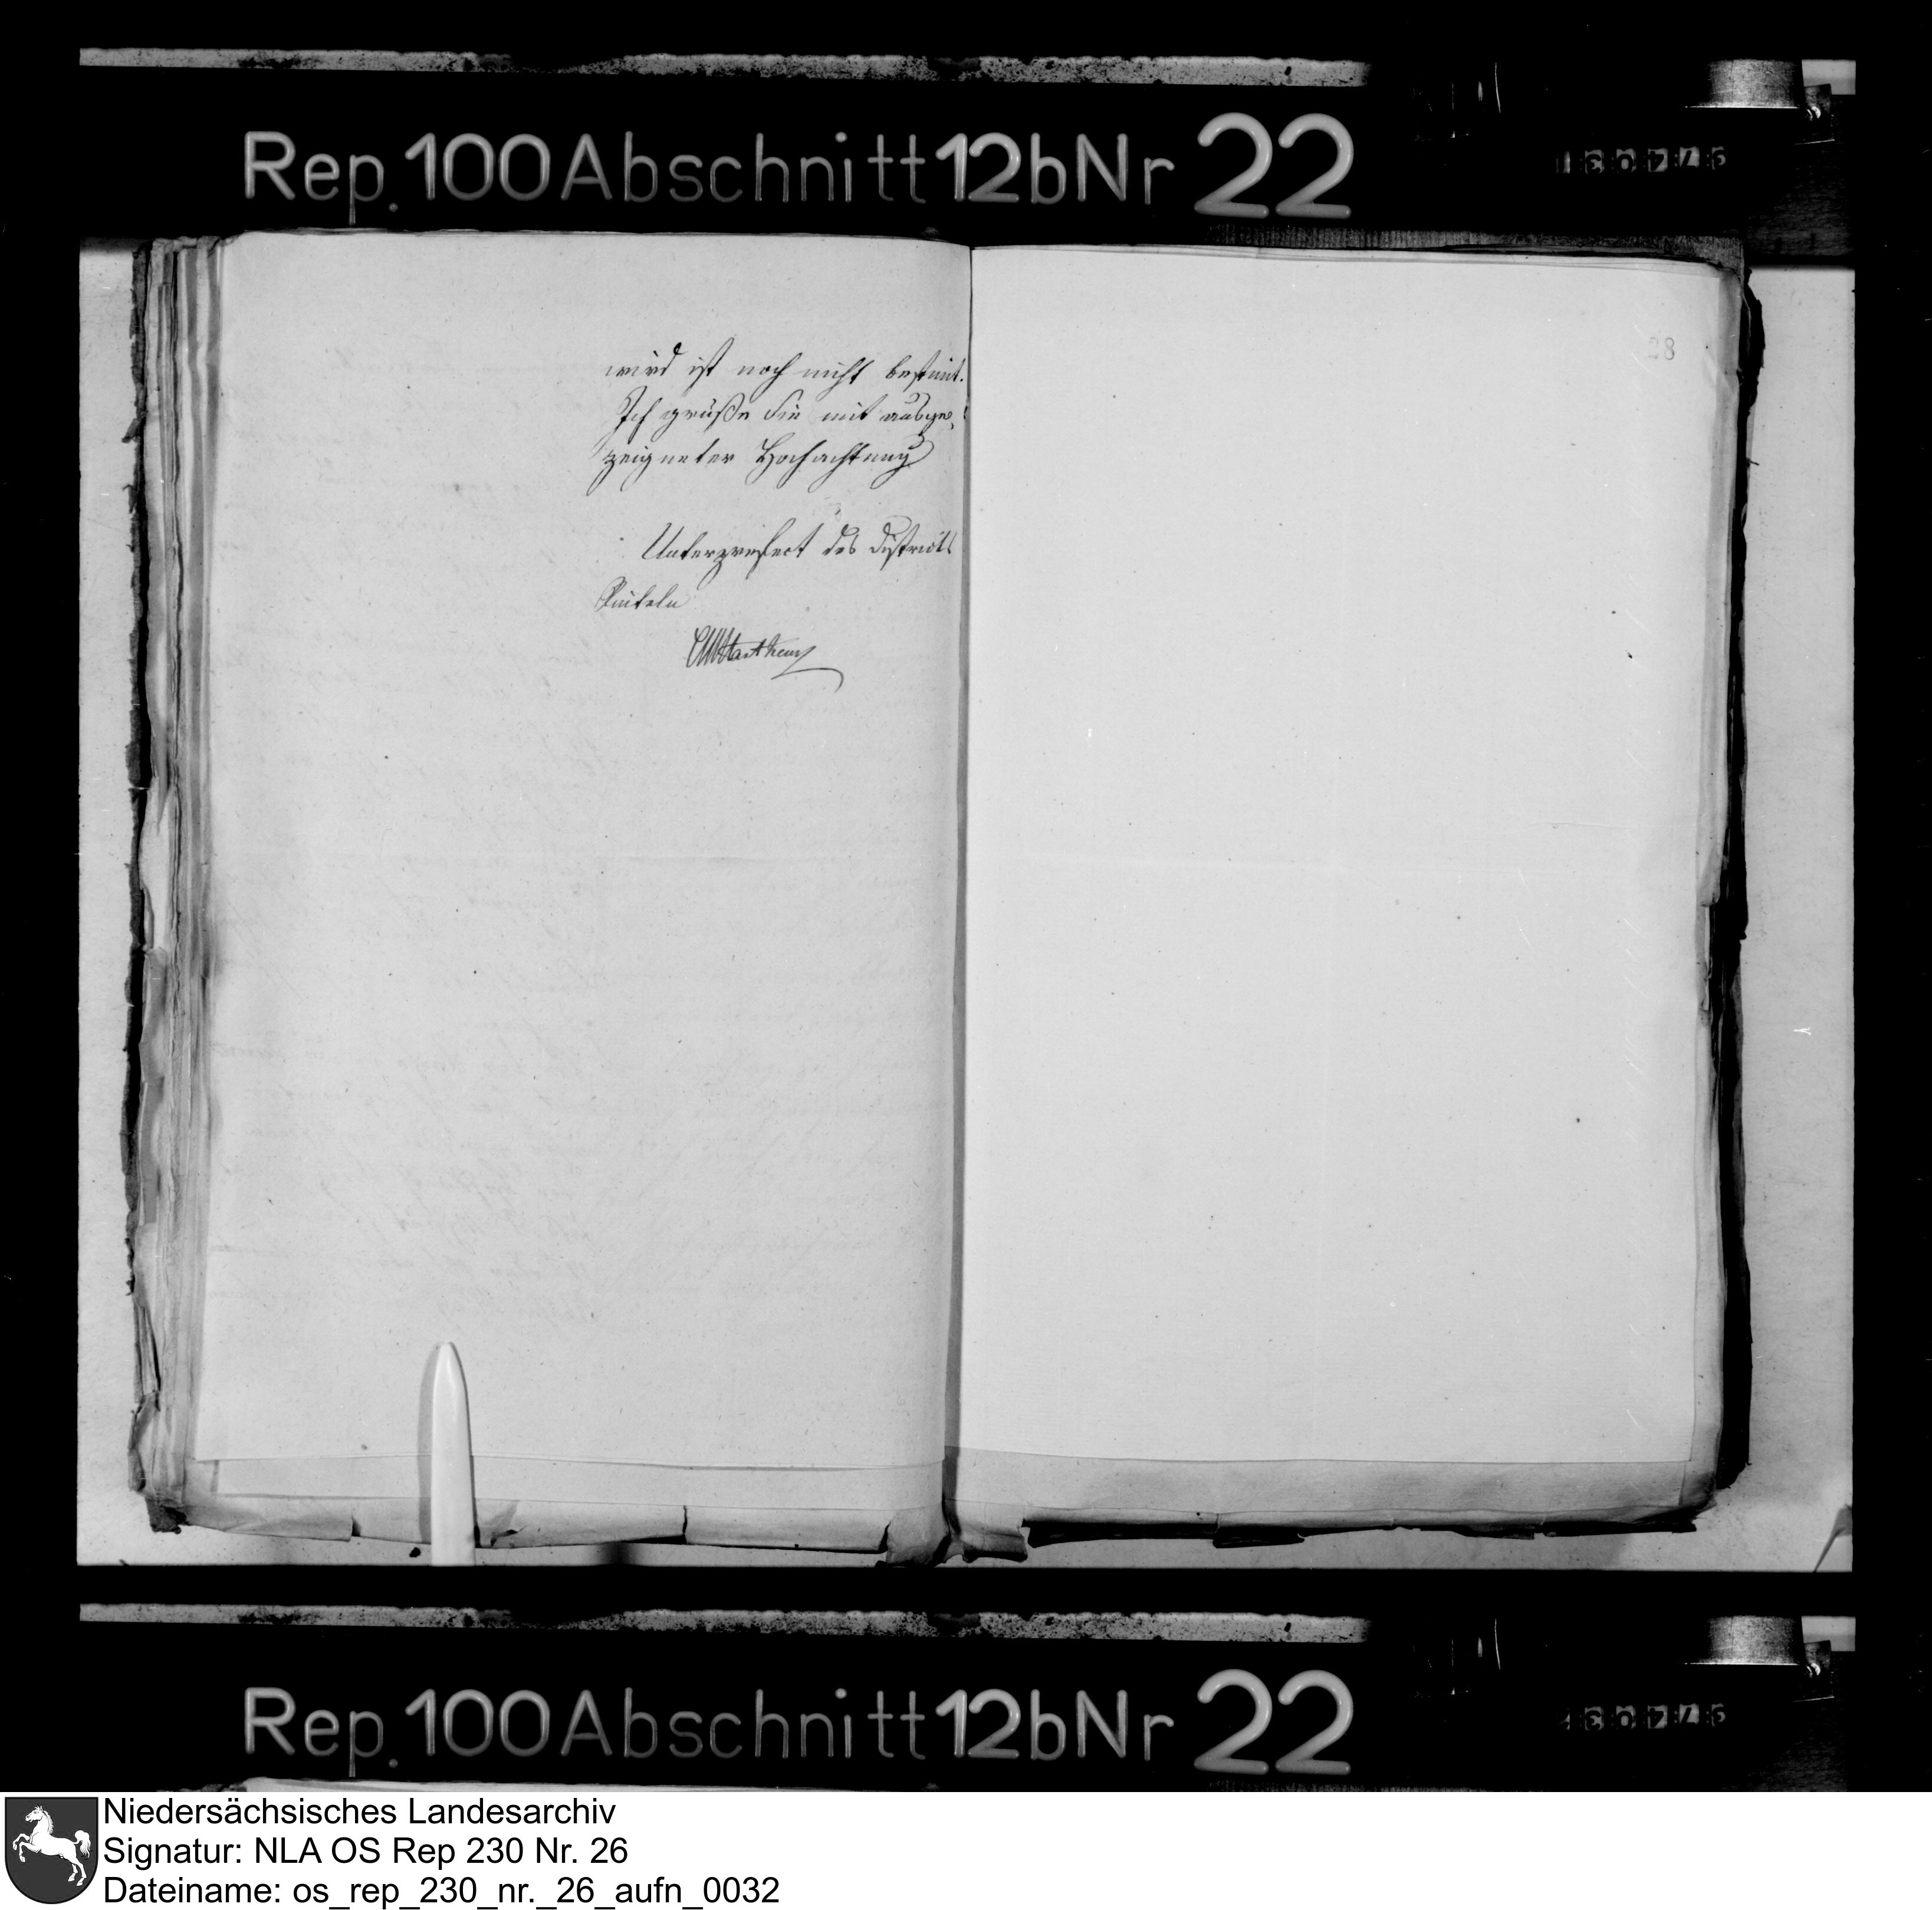 Rep. 100 Abschnitt 12b Nr 22
28
wird ist noch nicht bestimt.
Ich grüße Sie mit ausge-
zeigneter Hochachtung
Unterprefect des Districts
Rinteln
Rep. 100 Abschnitt 12b Nr 22
Niedersächsisches Landesarchiv
Signatur: NLA OS Rep 230 Nr. 26
Dateiname: os_rep_230_nr._26_aufn_0032